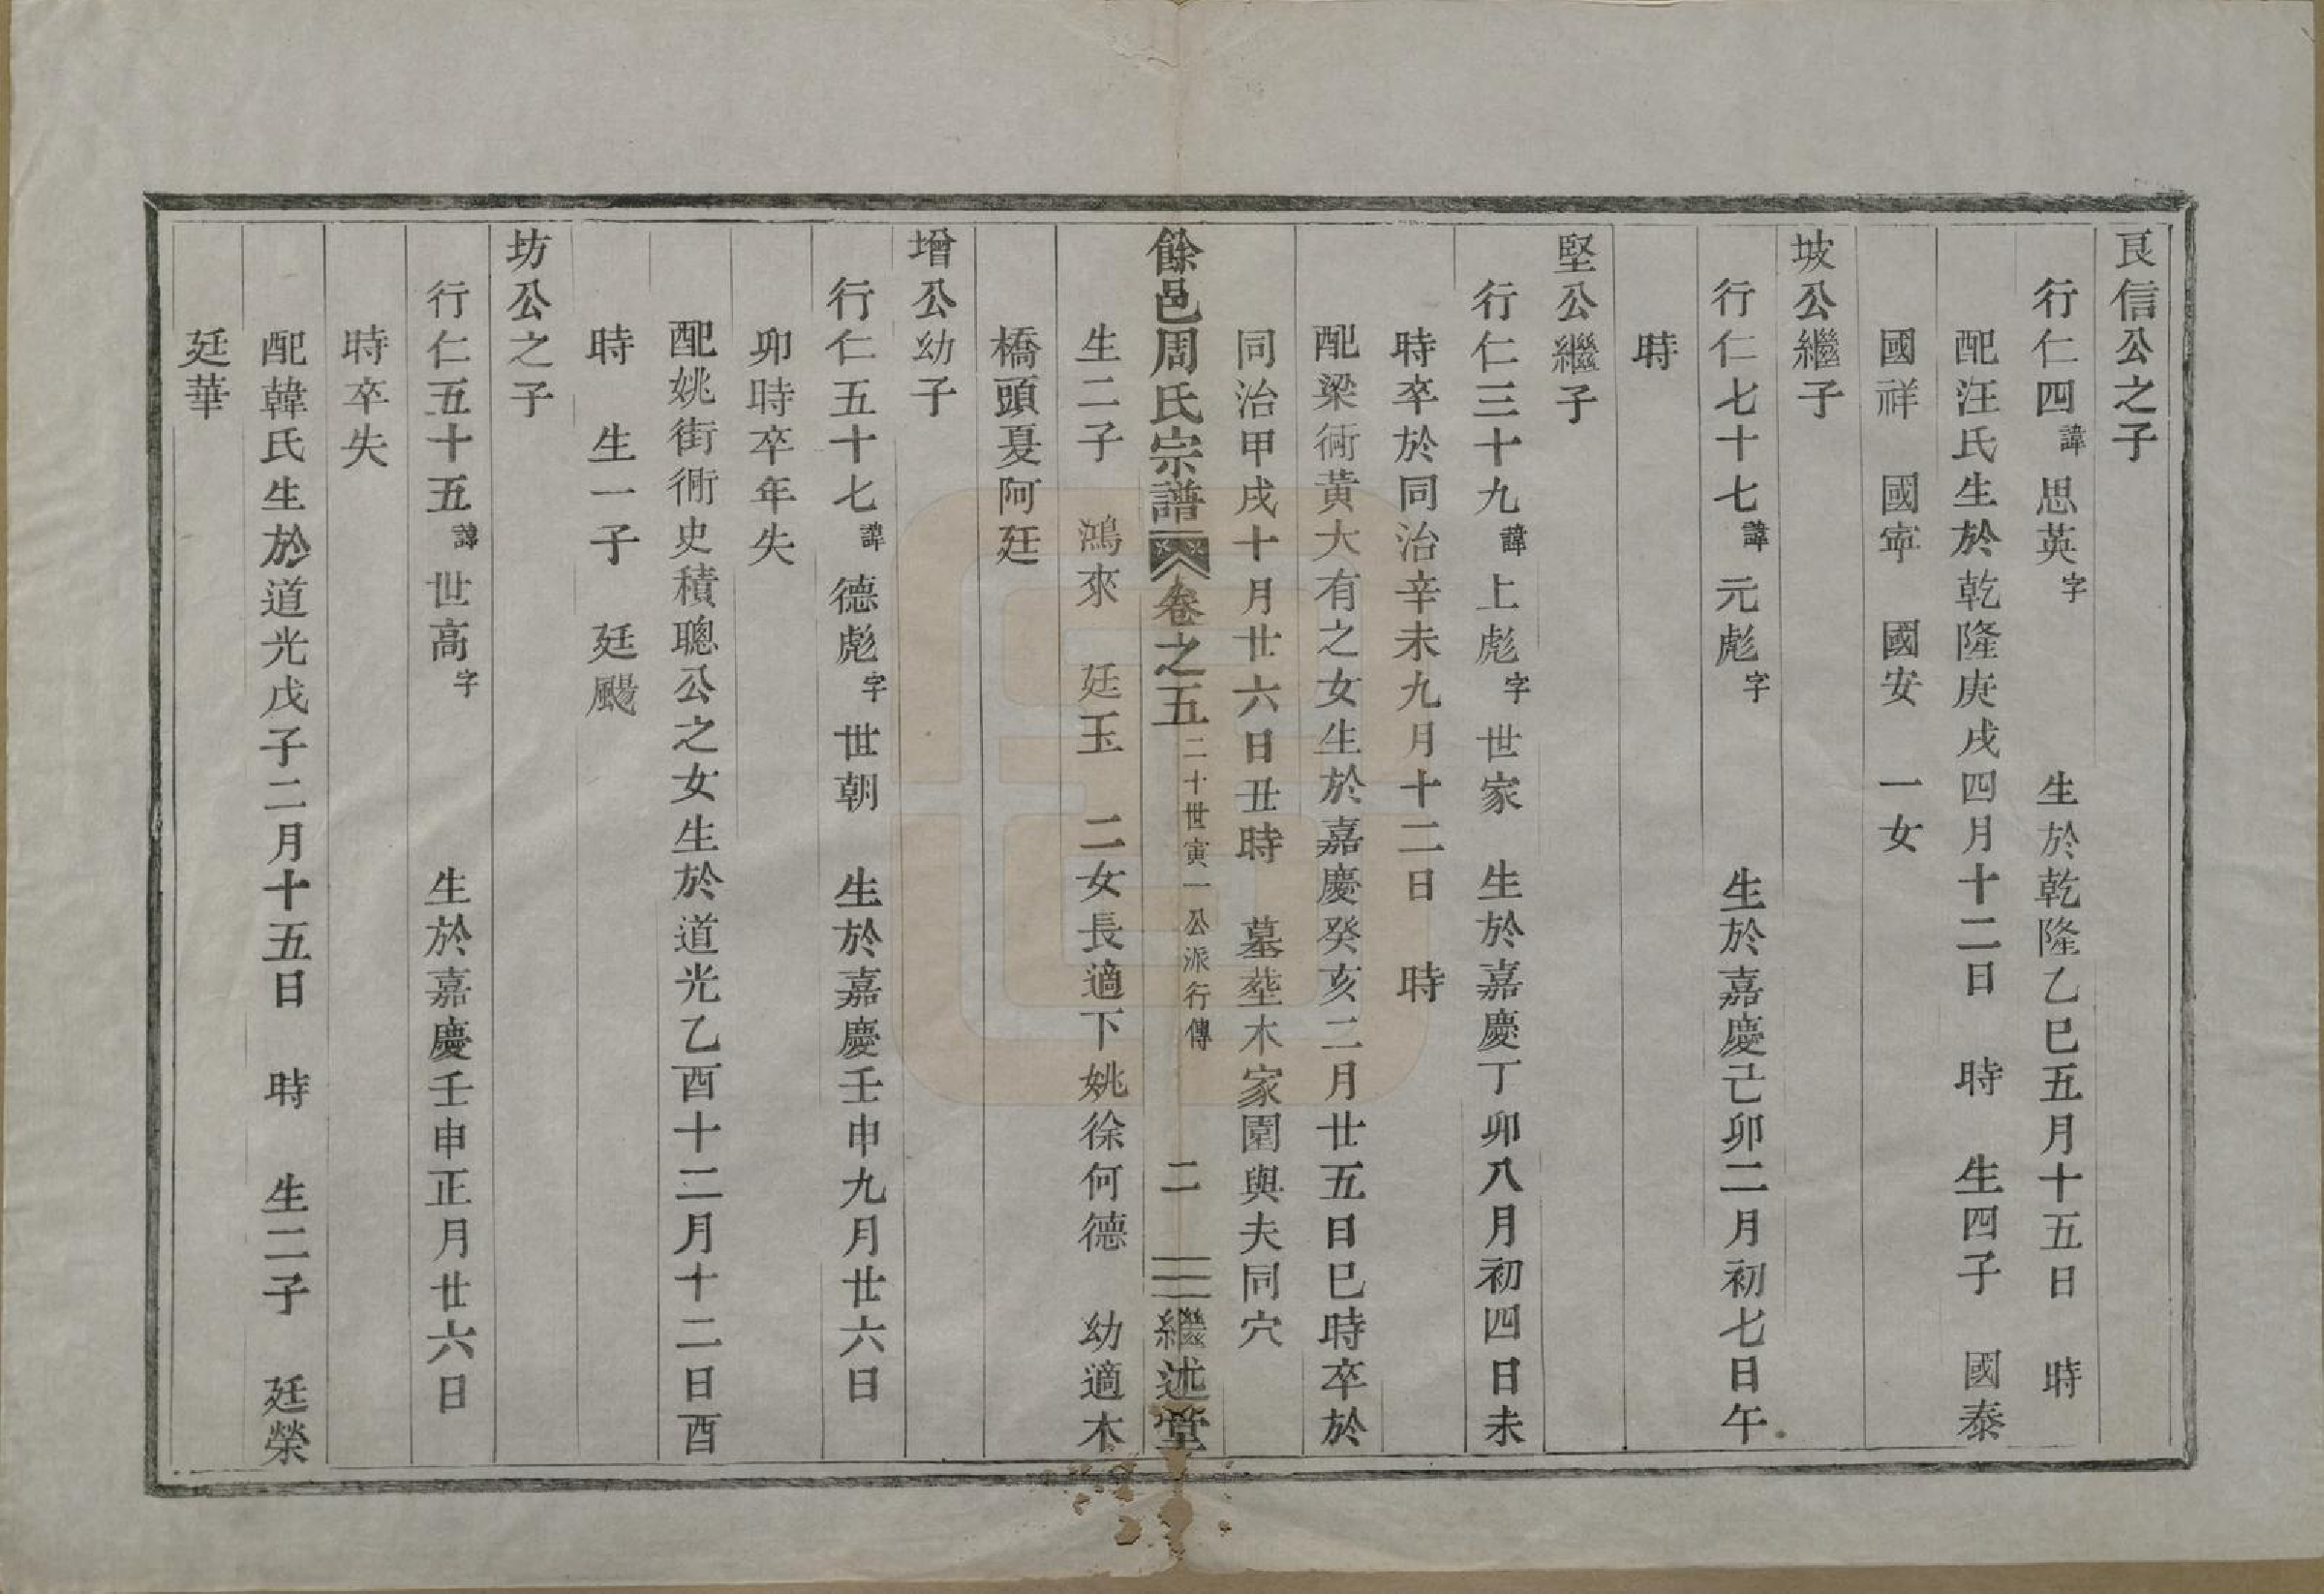 良信公之子
行仁四諱思英字 生於乾隆乙巳五月十五日 時
配汪氏生於乾隆庚戌四月十二日 時 生四子 國泰
國祥 國寧 國安 一女
坡公繼子
行仁七十七諱元彪字 生於嘉慶己卯二月初七日午
時
堅公繼子
行仁三十九諱上彪字世家 生於嘉慶丁卯八月初四日未
時卒於同治辛未九月十二日 時
配梁衕黃大有之女生於嘉慶癸亥二月廿五日巳時卒於
同治甲戌十月廿六日丑時 墓塟木家園與夫同穴
餘邑周氏宗譜 卷之五 二十世寅一公派行傳 二 繼述堂
生二子 鴻來 廷玉 二女長適下姚徐何德 幼適木
橋頭夏阿廷
增公幼子
行仁五十七諱德彪字世朝 生於嘉慶壬申九月廿六日
卯時卒年失
配姚街衕史積聰公之女生於道光乙酉十二月十二日酉
時 生一子 廷颺
坊公之子
行仁五十五諱世高字 生於嘉慶壬申正月廿六日
時卒失
配韓氏生於道光戊子二月十五日 時 生二子 廷榮
廷華